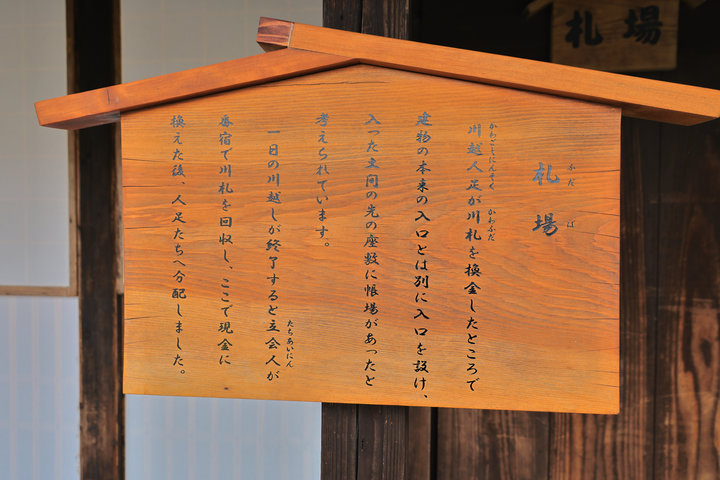 札場
ふだば
川越人足が川札を換金したところで
かわごえにんそく
かわふだ
建物の本来の入口とは別に入口を設け、
入った土間の先の座敷に帳場があったと
考えられています。
一日の川越しが終了すると立会人が
たちあいにん
番宿で川札を回収し、ここで現金に
換えた後、人足たちへ分配しました。
札場